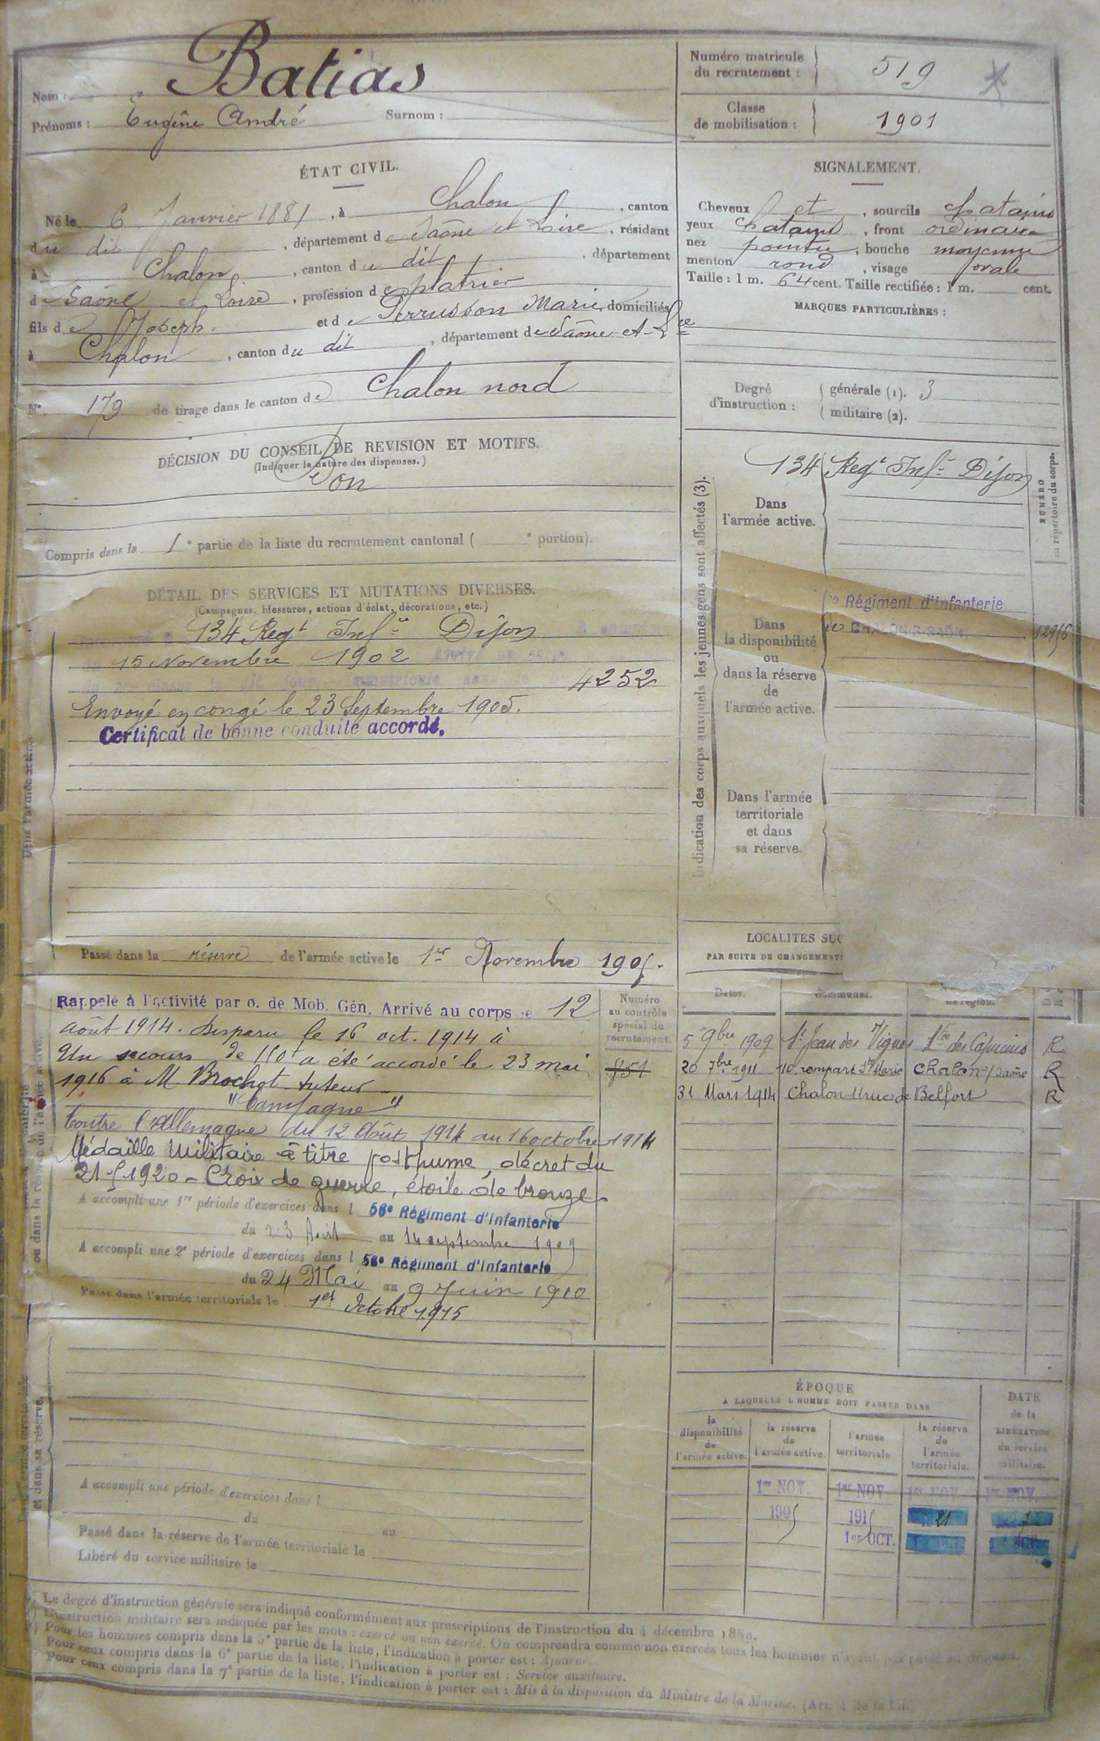 Nom : Batias
Prénoms : Eugène André Surnom :
Numéro matricule du recrutement : 519
Classe de mobilisation : 1901
ÉTAT CIVIL.
Né le 6 Janvier 1881, à Chalon, canton
du dit, département de Saône et Loire, résidant
à Chalon, canton du dit, département
de Saône et Loire, profession de platrier
fils de Joseph et de Perrusson Marie, domiciliés
à Chalon, canton du dit, département de Saône et Lre
N° 179 de tirage dans le canton de Chalon nord
SIGNALEMENT.
Cheveux et, sourcils chatains
yeux chatains, front ordinaire
nez pointu, bouche moyenne
menton rond, visage ovale
Taille : 1 m. 64 cent. Taille rectifiée : 1 m. cent.
MARQUES PARTICULIÈRES :
Degré d'instruction : générale (1). 3
militaire (2).
DÉCISION DU CONSEIL DE REVISION ET MOTIFS.
(Indiquer la nature des dispenses.)
Bon
Compris dans la 1e partie de la liste du recrutement cantonal ( e portion).
DÉTAIL DES SERVICES ET MUTATIONS DIVERSES.
(Campagnes, blessures, actions d'éclat, décorations, etc.)
134 Regt Infie Dijon
15 Novembre 1902
4252
Envoyé en congé le 23 Septembre 1905.
Certificat de bonne conduite accordé.
Passé dans la réserve de l'armée active le 1er Novembre 1905.
Indication des corps auxquels les jeunes gens sont affectés (3).
NUMÉRO au répertoire du corps.
134 Regt Infie Dijon
Dans l'armée active.
Régiment d'Infanterie
Dans la disponibilité ou dans la réserve de l'armée active.
Dans l'armée territoriale et dans sa réserve.
LOCALITÉS SUC
PAR SUITE DE CHANGEMENT
Rappelé à l'activité par o. de Mob. Gén. Arrivé au corps le 12
août 1914. Disparu le 16 oct. 1914 à
Un secours de 150f a été accordé le 23 mai
1916 à M Brochot tuteur
"Campagne"
Contre l'Allemagne du 12 Août 1914 au 16 octobre 1914
Médaille Militaire à titre posthume, décret du
21-5-1920 - Croix de guerre, étoile de bronze
A accompli une 1re période d'exercices dans l 56e Régiment d'Infanterie
du 23 Août au 14 septembre 1909
A accompli une 2e période d'exercices dans l 56e Régiment d'Infanterie
du 24 Mai au 9 Juin 1910
Passé dans l'armée territoriale le 1er Octobre 1915
Numéro au contrôle spécial du recrutement.
851
Dates. Communes. de région.
5 9bre 1909 St Jean des Vignes des Capucins R
20 7bre 1911 10 rempart Ste Marie Chalon s/Saône R
31 Mars 1914 Chalon 11 rue de Belfort R
ÉPOQUE
A LAQUELLE L'HOMME DOIT PASSER DANS
DATE de la LIBÉRATION du service militaire.
la disponibilité de l'armée active.
la réserve de l'armée active.
l'armée territoriale.
la réserve de l'armée territoriale.
1er NOV. 1er NOV. 1er NOV. 1er NOV.
1905 1915 21
1er OCT.
A accompli une période d'exercices dans l
du au
Passé dans la réserve de l'armée territoriale le
Libéré du service militaire le
Le degré d'instruction générale sera indiqué conformément aux prescriptions de l'instruction du 4 décembre 1889.
L'instruction militaire sera indiquée par les mots : exercé ou non exercé. On comprendra comme non exercés tous les hommes n'ayant pas passé au drapeau.
Pour les hommes compris dans la 5e partie de la liste, l'indication à porter est : Ajourné.
Pour ceux compris dans la 6e partie de la liste, l'indication à porter est : Service auxiliaire.
Pour ceux compris dans la 7e partie de la liste, l'indication à porter est : Mis à la disposition du Ministre de la Marine.